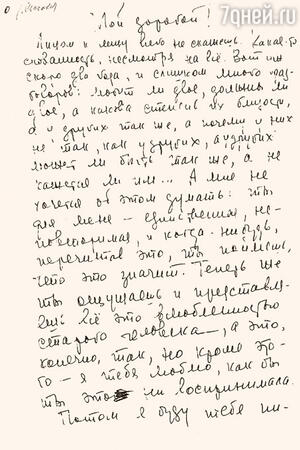 7дней.ru
Мой дорогой!
Лицом к лицу всего не скажешь. Какая-то
несмотря на всё. Вот уж
скоро два года, и слишком много раз-
говоров: любят ли двое, должны ли
двое, а какова степень их близости,
а у других так же, а почему у них
не так, как у других, а у других
может ли быть так же, а не
кажется ли им... А мне не
хочется об этом думать: ты
для меня – единственная, не-
повторимая, и когда-нибудь,
перечитав это, ты поймёшь,
что это значит. Теперь же
ты ощущаешь и представля-
ешь всё это влюблённостью
старого человека – а это,
конечно, так, но кроме это-
го – я тебя люблю, как бы
ты это ни воспринимала.
Потом я буду тебе пи-